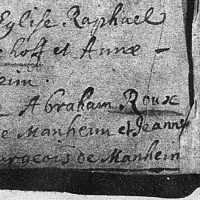 Eglise Raphael
hoff et Annæ
rim.
- Abraham Roux
e Manheim et Jeanne
urgeois de Manheim